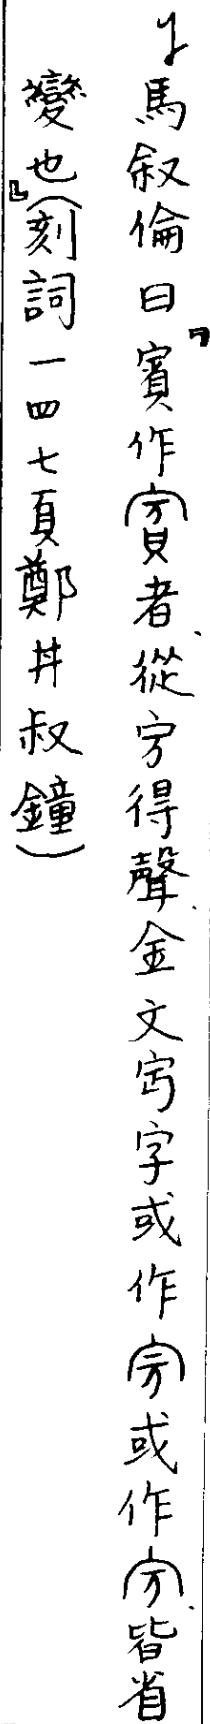 馬叙倫曰「賓作𡧍者、從㝉得聲、金文宾字或作𡧊或作㝉、皆省
變也」(刻詞一四七頁鄭井叔鐘)